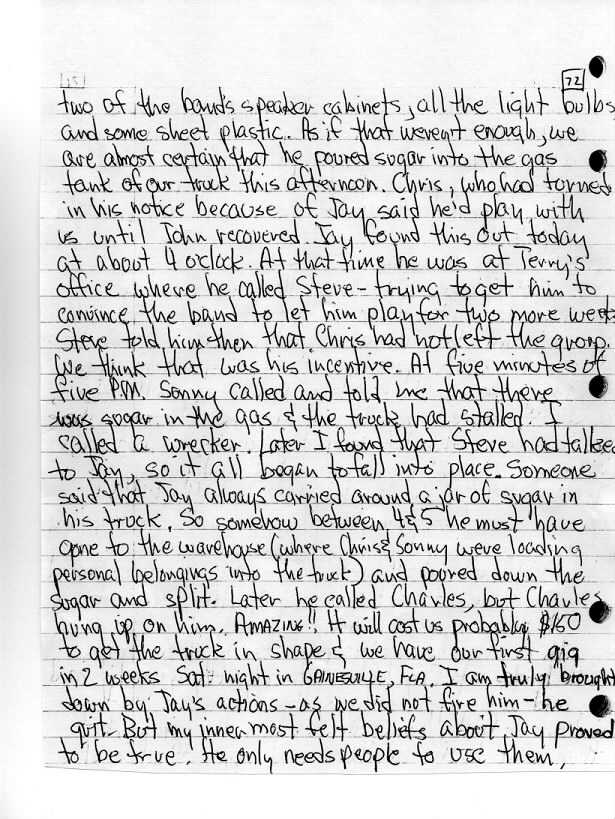 15
72
two of the band's speaker cabinets, all the light bulbs
and some sheet plastic. As if that weren't enough, we
are almost certain that he poured sugar into the gas
tank of our truck this afternoon. Chris, who had turned
in his notice because of Jay said he'd play with
us until John recovered. Jay found this out today
at about 4 o'clock. At that time he was at Terry's
office where he called Steve - trying to get him to
convince the band to let him play for two more weeks
Steve told him then that Chris had not left the group.
We think that was his incentive. At five minutes of
five P.M. Sonny called and told me that there
was sugar in the gas & the truck had stalled. I
called a wrecker. Later I found that Steve had talked
to Jay, so it all began to fall into place. Someone
said that Jay always carried around a jar of sugar in
his truck. So somehow between 4 & 5 he must have
gone to the warehouse (where Chris & Sonny were loading
personal belongings into the truck) and poured down the
sugar and split. Later he called Charles, but Charles
hung up on him. AMAZING!! It will cost us probably $150
to get the truck in shape & we have our first gig
in 2 weeks Sat. night in GAINESVILLE, FLA. I am truly brought
down by Jay's actions - as we did not fire him - he
quit. But my inner most felt beliefs about Jay proved
to be true. He only needs people to use them,